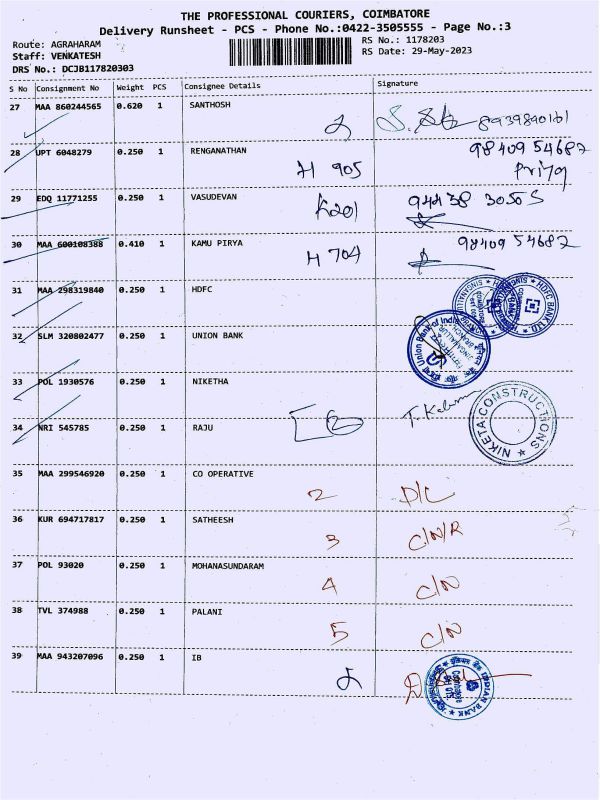 THE PROFESSIONAL COURIERS, COIMBATORE
Delivery Runsheet - PCS - Phone No.:0422-3505555 - Page No.:3
Route: AGRAHARAM
Staff: VENKATESH
DRS No.: DCJB117820303
RS No.: 1178203
RS Date: 29-May-2023
S No Consignment No Weight PCS Consignee Details Signature
27 MAA 860244565 0.620 1 SANTHOSH
2 8939890101
28 UPT 6048279 0.250 1 RENGANATHAN
H 905 98409 54687
Priya
29 EDQ 11771255 0.250 1 VASUDEVAN
K201 94438 30505
30 MAA 600108388 0.410 1 KAMU PIRYA
H 704 98409 54687
31 MAA 298319840 0.250 1 HDFC
HDFC BANK LTD
32 SLM 320802477 0.250 1 UNION BANK
Union Bank of India
33 POL 1930576 0.250 1 NIKETHA
NIKETA CONSTRUCTIONS
34 NRI 545785 0.250 1 RAJU
35 MAA 299546920 0.250 1 CO OPERATIVE
2 D/L
36 KUR 694717817 0.250 1 SATHEESH
3 C/N/R
37 POL 93020 0.250 1 MOHANASUNDARAM
4 C/N
38 TVL 374988 0.250 1 PALANI
5 C/N
39 MAA 943207096 0.250 1 IB
2 INDIAN BANK